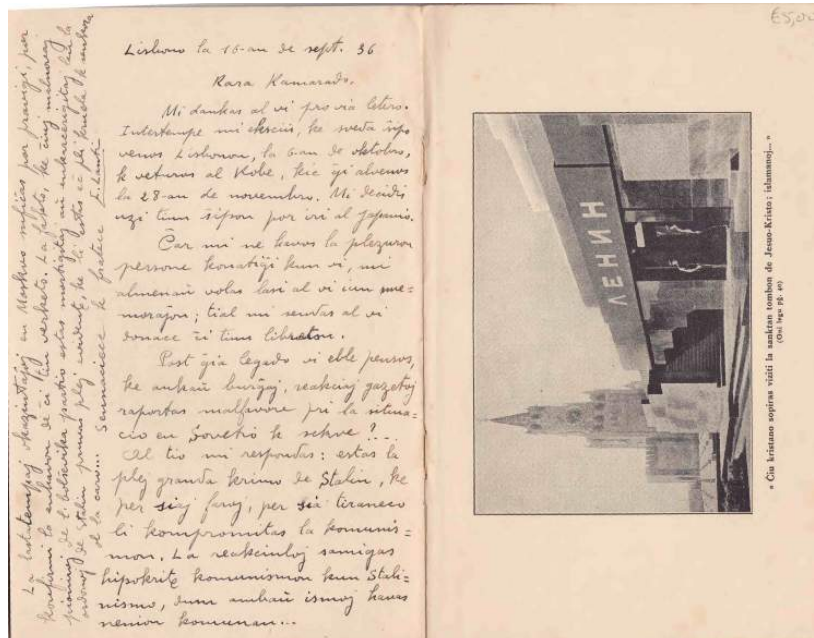 Lisbono la 16-an de sept. 36
Kara Kamarado,
Mi dankas al vi pro via letero.
Intertempe mi eksciis, ke sveda ŝipo
venos Lisbonon, la 6-an de oktobro,
k veturos al Kobe, kie ĝi alvenos
la 28-an de novembro. Mi decidis
uzi tiun ŝipon por iri al Japanio.
Ĉar mi ne havos la plezuron
persone konatiĝi kun vi, mi
almenaŭ volas lasi al vi iun me=
moraĵon; tial mi sendas al vi
donace ĉi tiun libreton.
Post ĝia legado vi eble pensos,
ke ankaŭ burĝaj, reakciaj gazetoj
raportas malfavore pri la situa=
cio en Sovetio k sekve?...
Al tio mi respondas: estas la
plej granda krimo de Stalin, ke
per siaj faroj, per sia tiraneco
li kompromitas la komunis=
mon. La reakciuloj samigas
hipokrite komunismon kun Stali=
nismo, dum ambaŭ ismoj havas
nenion komunan...
La lastatempaj okazintaĵoj en Moskvo sufiĉas por pravigi, por
konfirmi la enhavon de ĉi tiu verketo. La fakto, ke ĉiuj malnovaj
pioniroj de l' bolŝevika partio estas mortigitaj aŭ enkarcerigitaj laŭ la
ordonoj de Stalin pruvas plej evidente, ke li estas eĉ pli kruela k
ol la caro... Sennaciece k frate E. Lanti
€5,00
ЛЕНИН
« Ĉiu kristano sopiras viziti la sanktan tombon de Jesuo-Kristo; islamanoj... »
(Oni legu pĝ. 40)